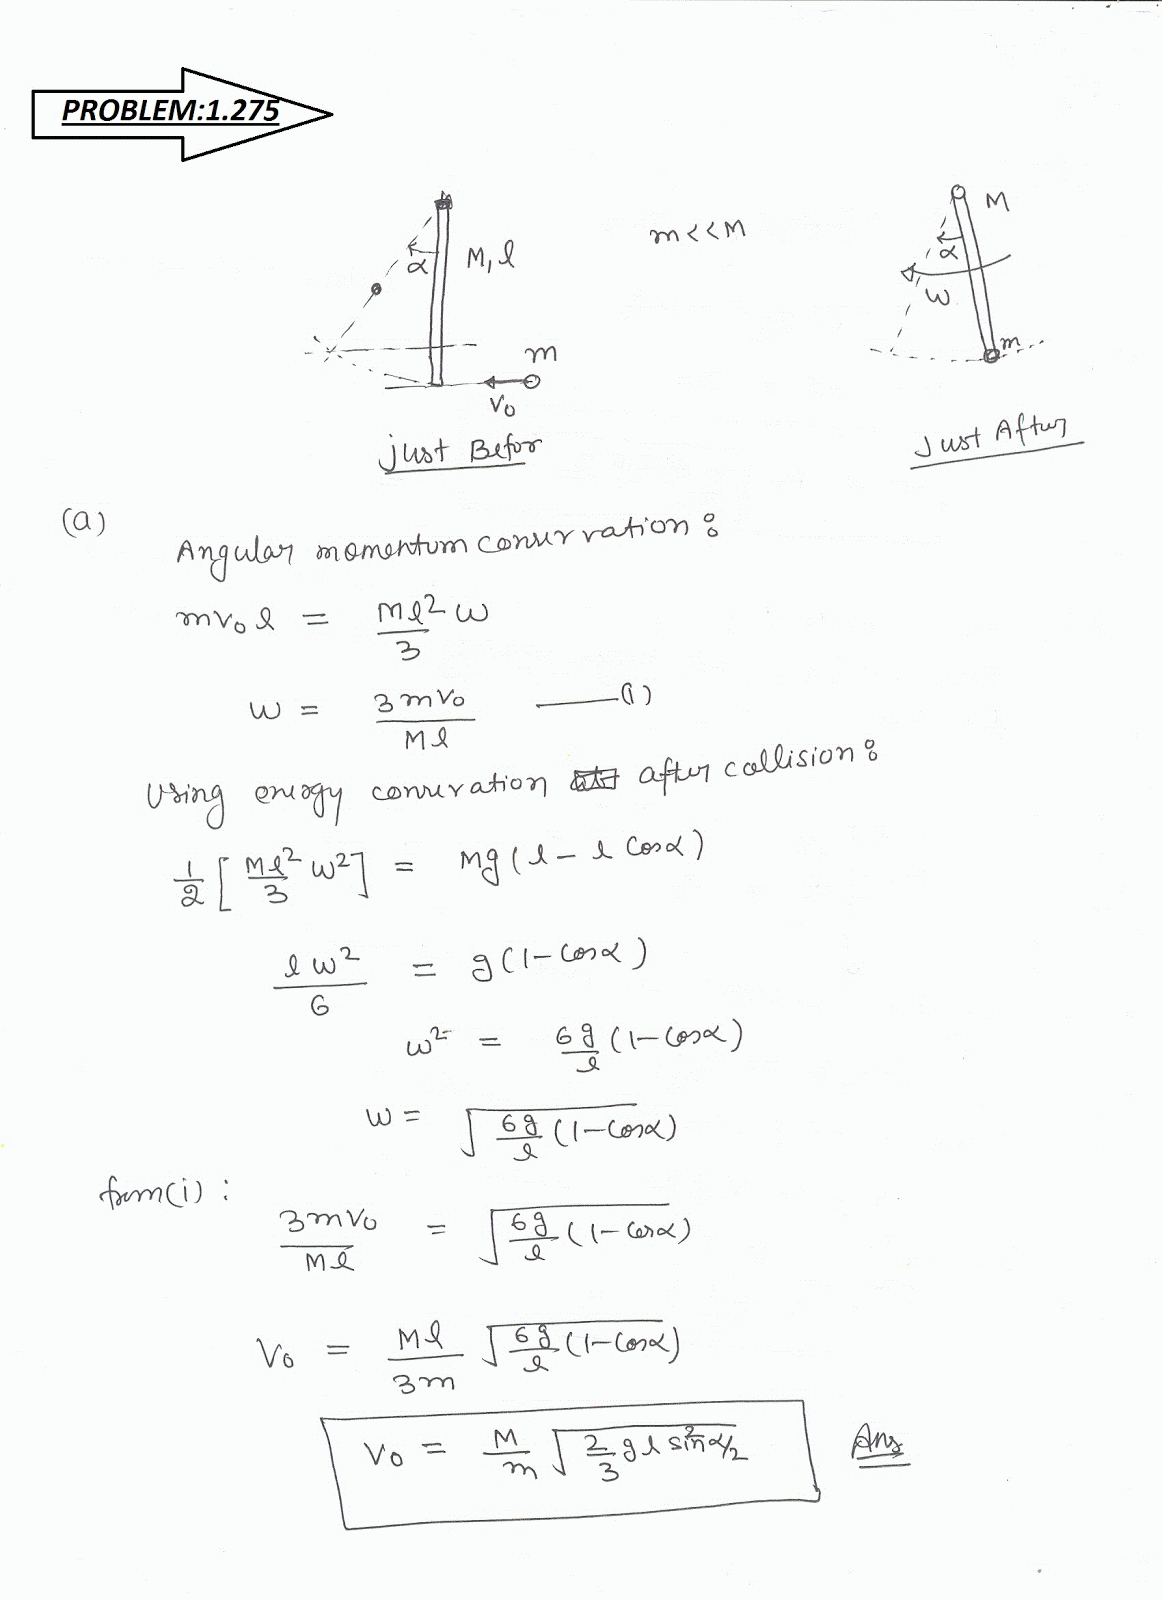 PROBLEM:1.275
M, l
m<<M
M
α
α
ω
m
m
v₀
just Befor
Just After
(a)
Angular momentum conservation:
mv₀l = Ml²ω/3
ω = 3mv₀/Ml ——(i)
Using energy conservation after collision:
1/2 [Ml²/3 ω²] = Mg(l - l cosα)
lω²/6 = g(1-cosα)
ω² = 6g/l (1-cosα)
ω = √(6g/l (1-cosα))
from(i):
3mv₀/Ml = √(6g/l (1-cosα))
v₀ = Ml/3m √(6g/l (1-cosα))
v₀ = M/m √(2/3 gl sin²α/2) Ans